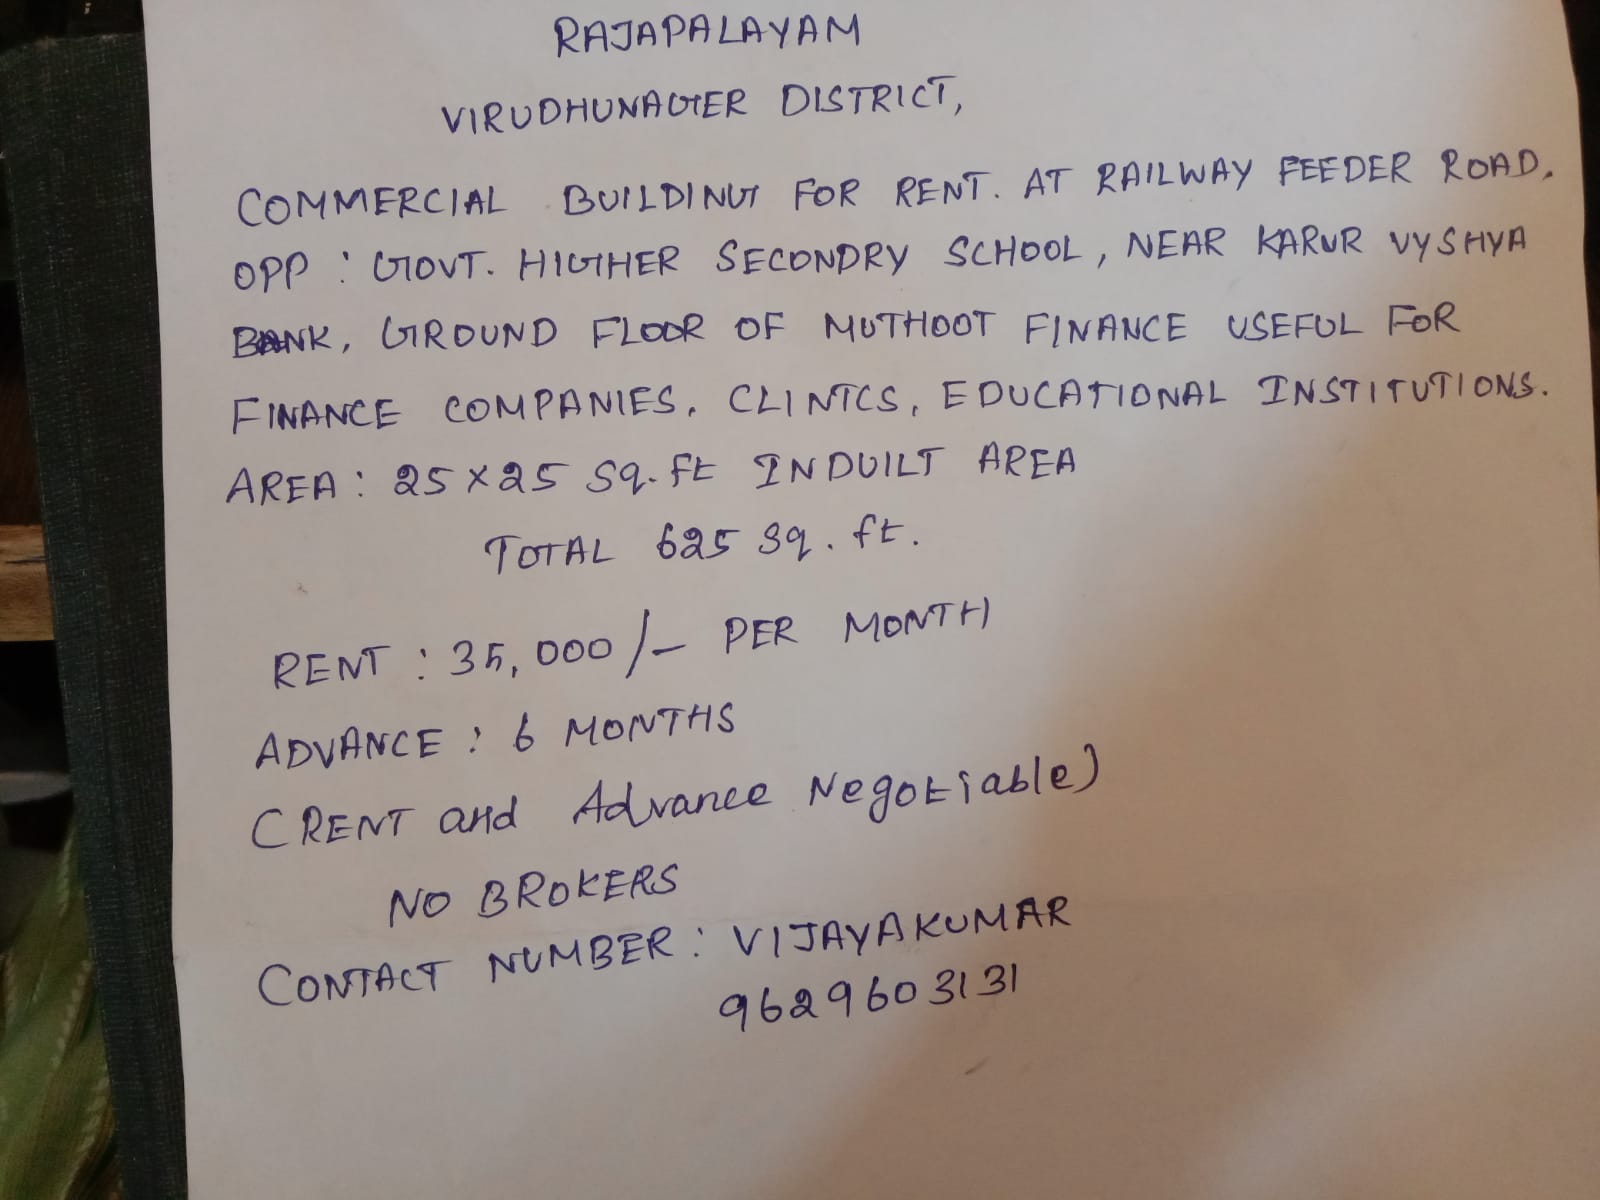 RAJAPALAYAM
VIRUDHUNAGER DISTRICT,
COMMERCIAL BUILDING FOR RENT. AT RAILWAY FEEDER ROAD.
OPP : GOVT. HIGHER SECONDRY SCHOOL, NEAR KARUR VYSHYA
BANK, GROUND FLOOR OF MUTHOOT FINANCE USEFUL FOR
FINANCE COMPANIES, CLINICS, EDUCATIONAL INSTITUTIONS.
AREA : 25 X 25 Sq. Ft INDUILT AREA
TOTAL 625 sq. ft.
RENT : 35,000/- PER MONTH
ADVANCE : 6 MONTHS
(RENT and Advance Negotiable)
NO BROKERS
CONTACT NUMBER : VIJAYAKUMAR
9629603131